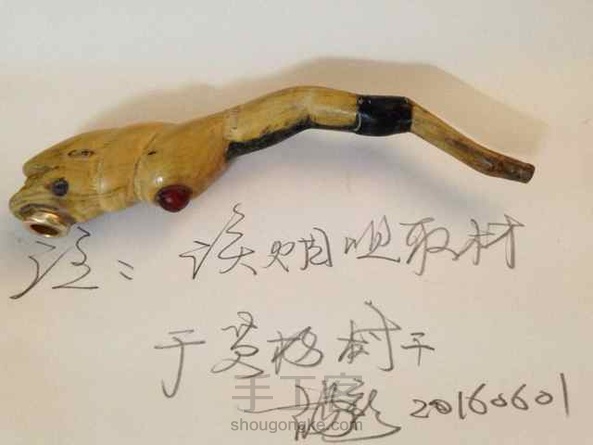 注：该烟咀取材
于黄杨树干
20160601
手工客
shougonake.com